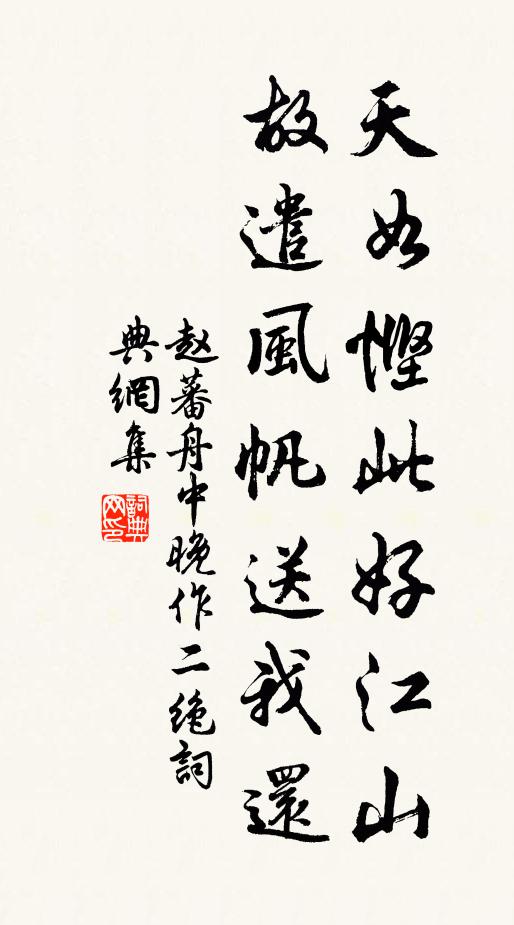 天如慳此好江山
故遣風帆送我還
赵蕃舟中晚作二绝詞
典網集
詞典网印